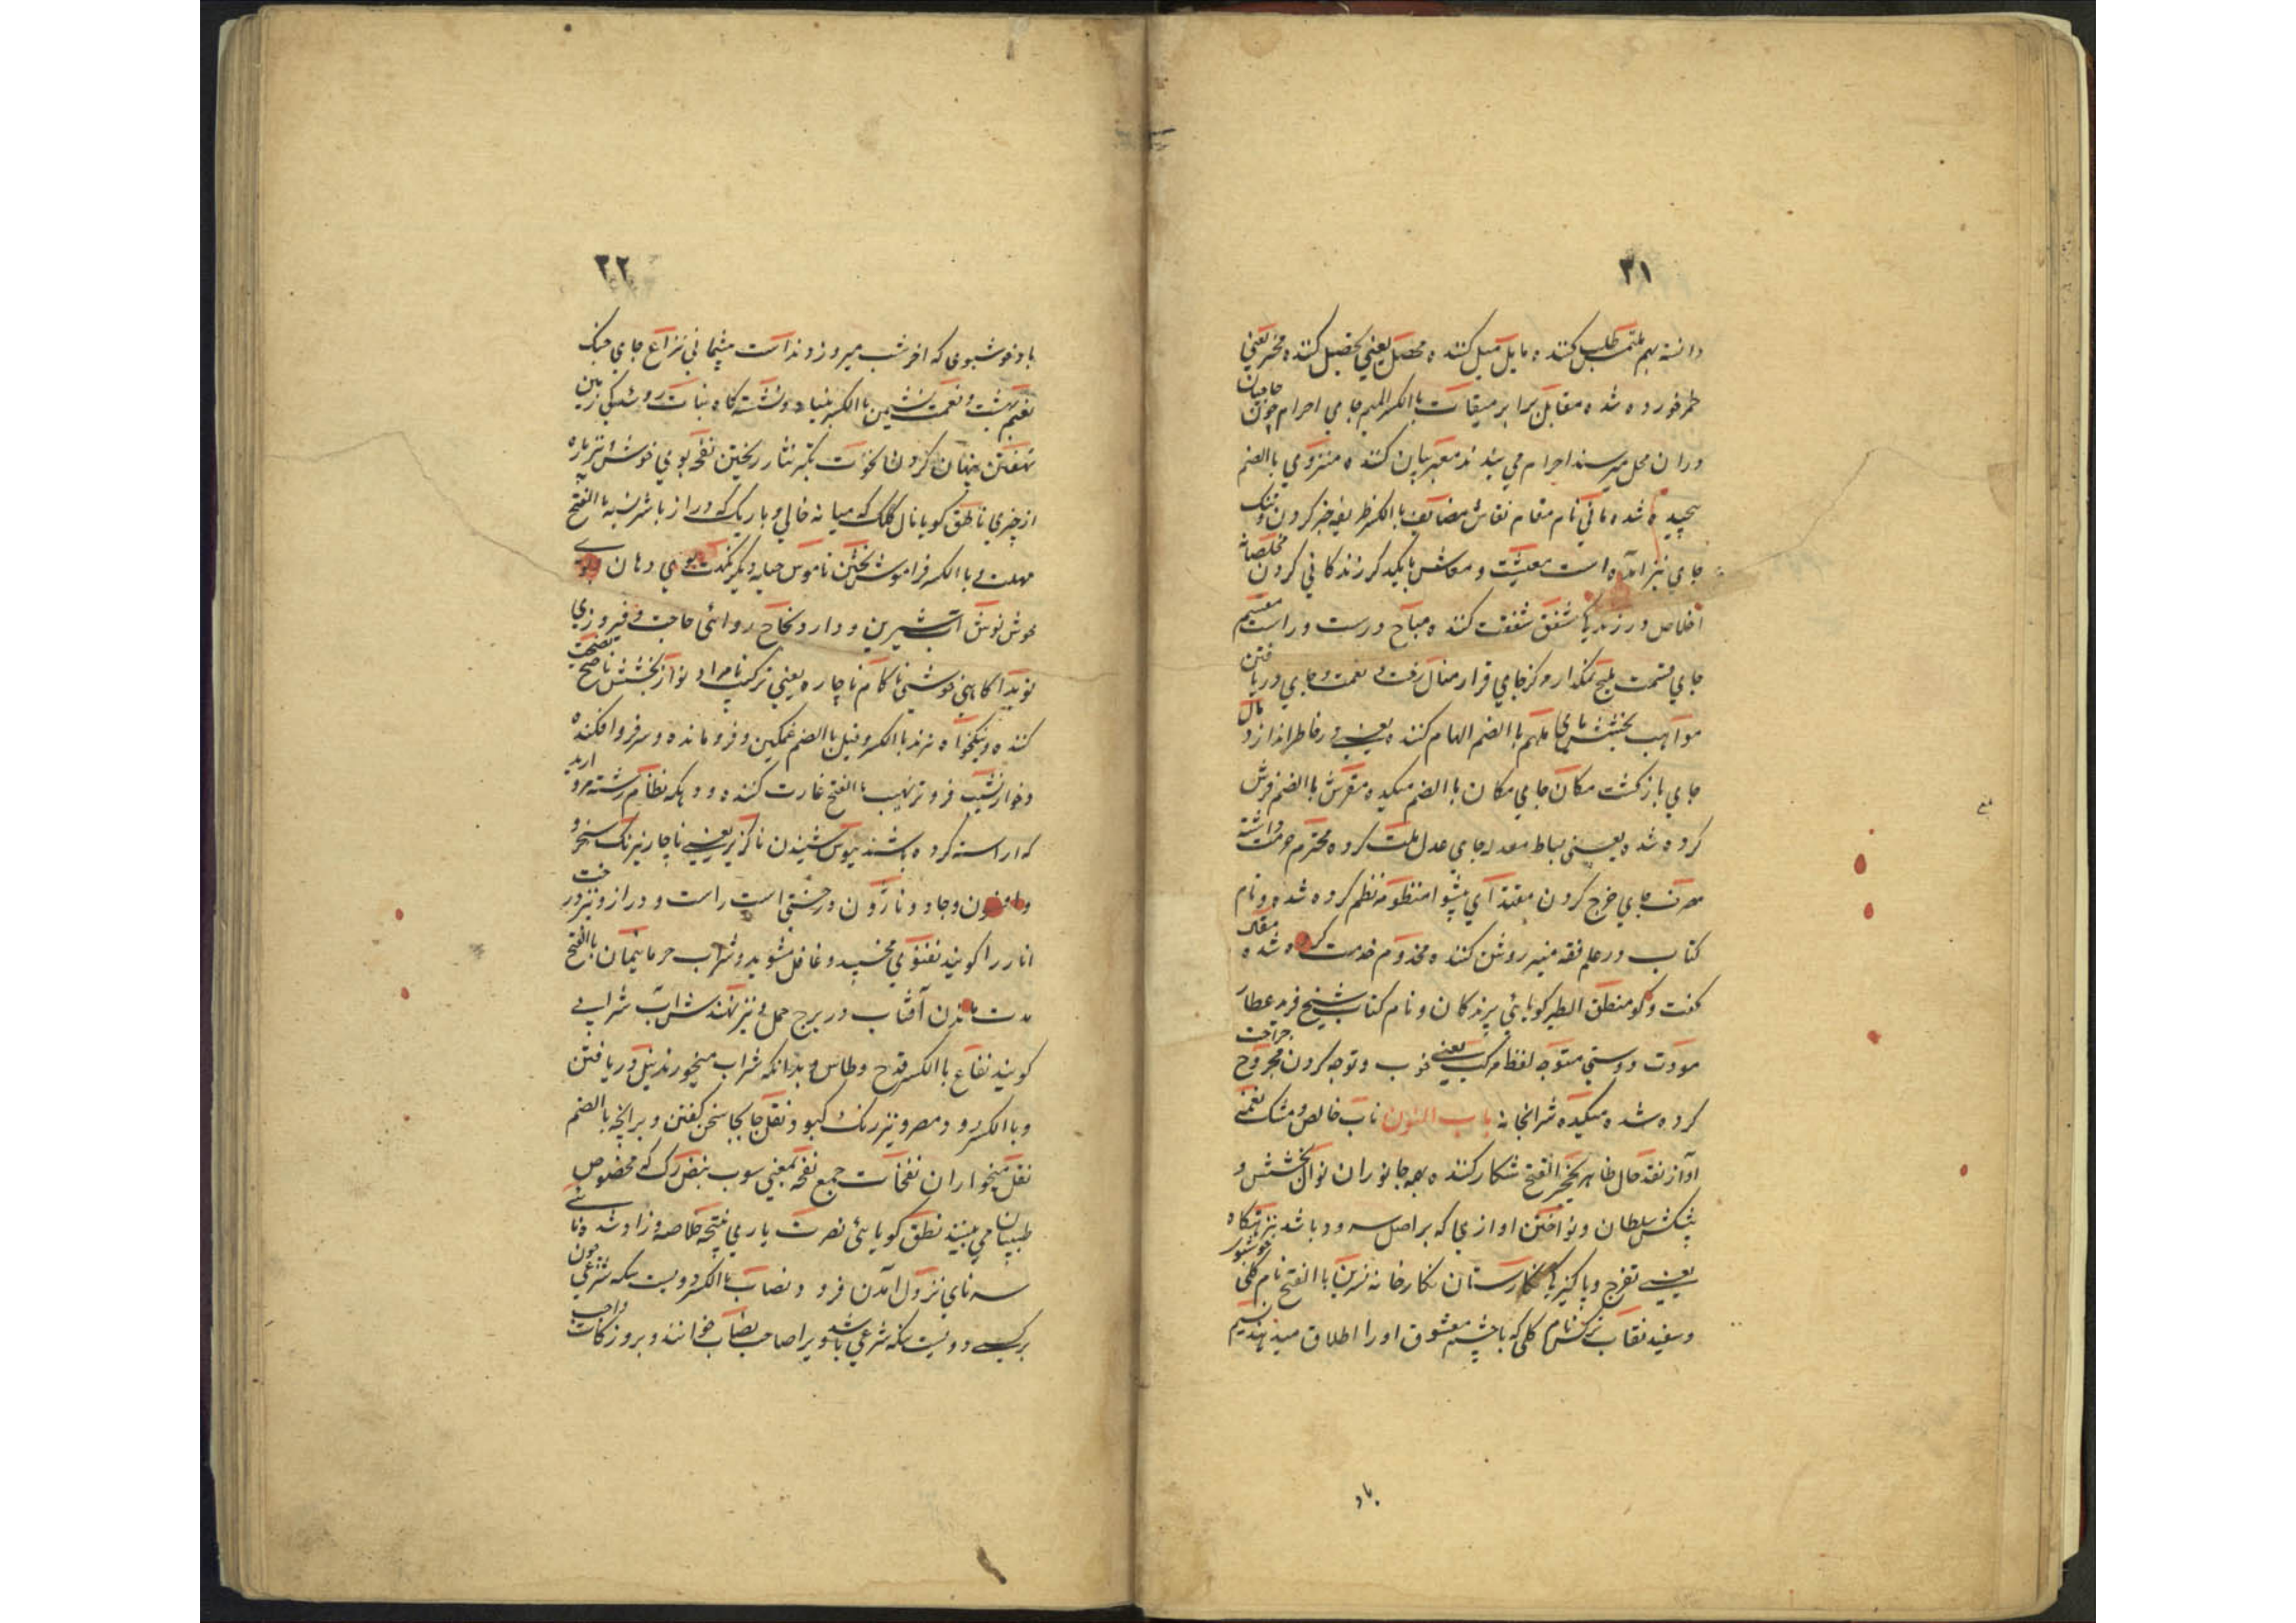 ۲۱
دانسته بهم ملتمس طلب کننده مایل میل کننده محصل یعنی تحصیل کننده مخمر یعنی
خمر خورده شده مقابل برابر میقات باالکسر المیم جای احرام چون حاجیان
دران محل میرسند احرام می بندند معبر بیان کننده منزوی باالضم
پیچیده شده مانی نام مقام نقاش مضایف باالکسر ظریفه خبر کردن و جنگ
جای نیز آمده است معیشت و معاش بایکدیگر زندگانی کردن مخلصانه
اخلاص ورزندها مشفق شفقت کننده مباح درست و راست مقسم
جای قسمت ملیح نمکدار مرکز جای قرار منال رفت و نعمت و جای دریافتن
مواهب بخشش های ملهم باالضم الهام کننده یعنی در خاطر اندازد مآل
جای بازگشت مکان جای مکان باالضم میکیده مفرش باالضم فرش
کرده شده یعنی بساط معدلت جای عدل ملت کرده محترم حرمت داشته
مصرف جای خرج کردن مقتدای پیشوا منظومه نظم کرده شده و نام
کتاب در علم فقه منیر روشن کننده مخدوم خدمت کرده شده مقال
گفت و گو منطق الطیر گویائی پرندگان و نام کتاب شیخ فرید عطار
مودت دوستی متوجه لفظ مرکب یعنی خوب و توجه کردن مجروح جراحت
کرده شده میکده شرابخانه باب النون ناب خالص و مشک نغمه
آواز نقد حال ظاهر نخجیر باالفتح شکار کننده بهمه جانوران نوال بخشش و
پیشکش سلطان و نواختن اوازی که براصل سرود باشد نزهتگاه
یعنی تفرج و پاکیزها نگارستان نگارخانه نسرین باالفتح نام گلی خوشبوی
و سفید نقاب نرگس نام گلی که باچشم معشوق اورا اطلاق میدهند نسیم
باد
۲۲
باد خوشبوی که اخر شب میروزد ندامت پشیمانی نزاع جای جنگ
نعیم بهشت و نعمت نشیمن باالکسر بنیاد و نشستگاه نبات روئیدگی زمین
نهفتن پنهان کردن نخوت تکبر نثار ریختن نفحه بوی خوش نیز پاره
از چیزی ناطق گویا نال کلک که میانه خالی و باریک که دراز باشد نسیه باالفتح
مهلت و باالکسر فراموش بختن ناموس حیله و مکر نکهت بوی دهان و بوی
خوش نوش آب شیرین و دارو نجاح روائی حاجت و فیروزی
نوید آگاهی خوشی ناکام ناچاره یعنی ترکیب نامراد نواز بخشش ناصح نصیحت
کننده و نیکخواه نژند باالکسر و قیل باالضم غمگین و فرومانده و سر فروافکنده
و خوار نشیب فروتر نهیب باالفتح غارت کننده و دهکه نظام رشته مروارید
که اراسته کرده باشند نیوش شنیدن ناگزیر یعنی ناچار نیرنگ سحر و
و افسون و جادو نارون درختی است راست و دراز و نیز درخت
انار را گویند نغنوی مخسپد و غافل مشوید و شراب خرما نیسان باالفتح
مدت ماندن آفتاب در برج حمل و نیز تند شراب شرابی
گویند نفاع باالکسر قدح و طاس و بدانکه شراب میخورند نیل دریافتن
و باالکسر رود مصر و نیز رنگ کبود نقل جابجا سخن گفتن و برانچه باالضم
نقل میخواران نفحات جمع نفحه بمعنی سوب نبض رگ که مخصوص
طبیبان می بینند نطق گویائی نصرت یاری نتیجه خلاصه و زاد شدنی و نا
سرنای نزول آمدن فرود نصاب باالکسر دویست سکه شرعی چون
برکسی دویست سکه شرعی باشد ویرا صاحب نصاب خوانند و بروز کات واجب